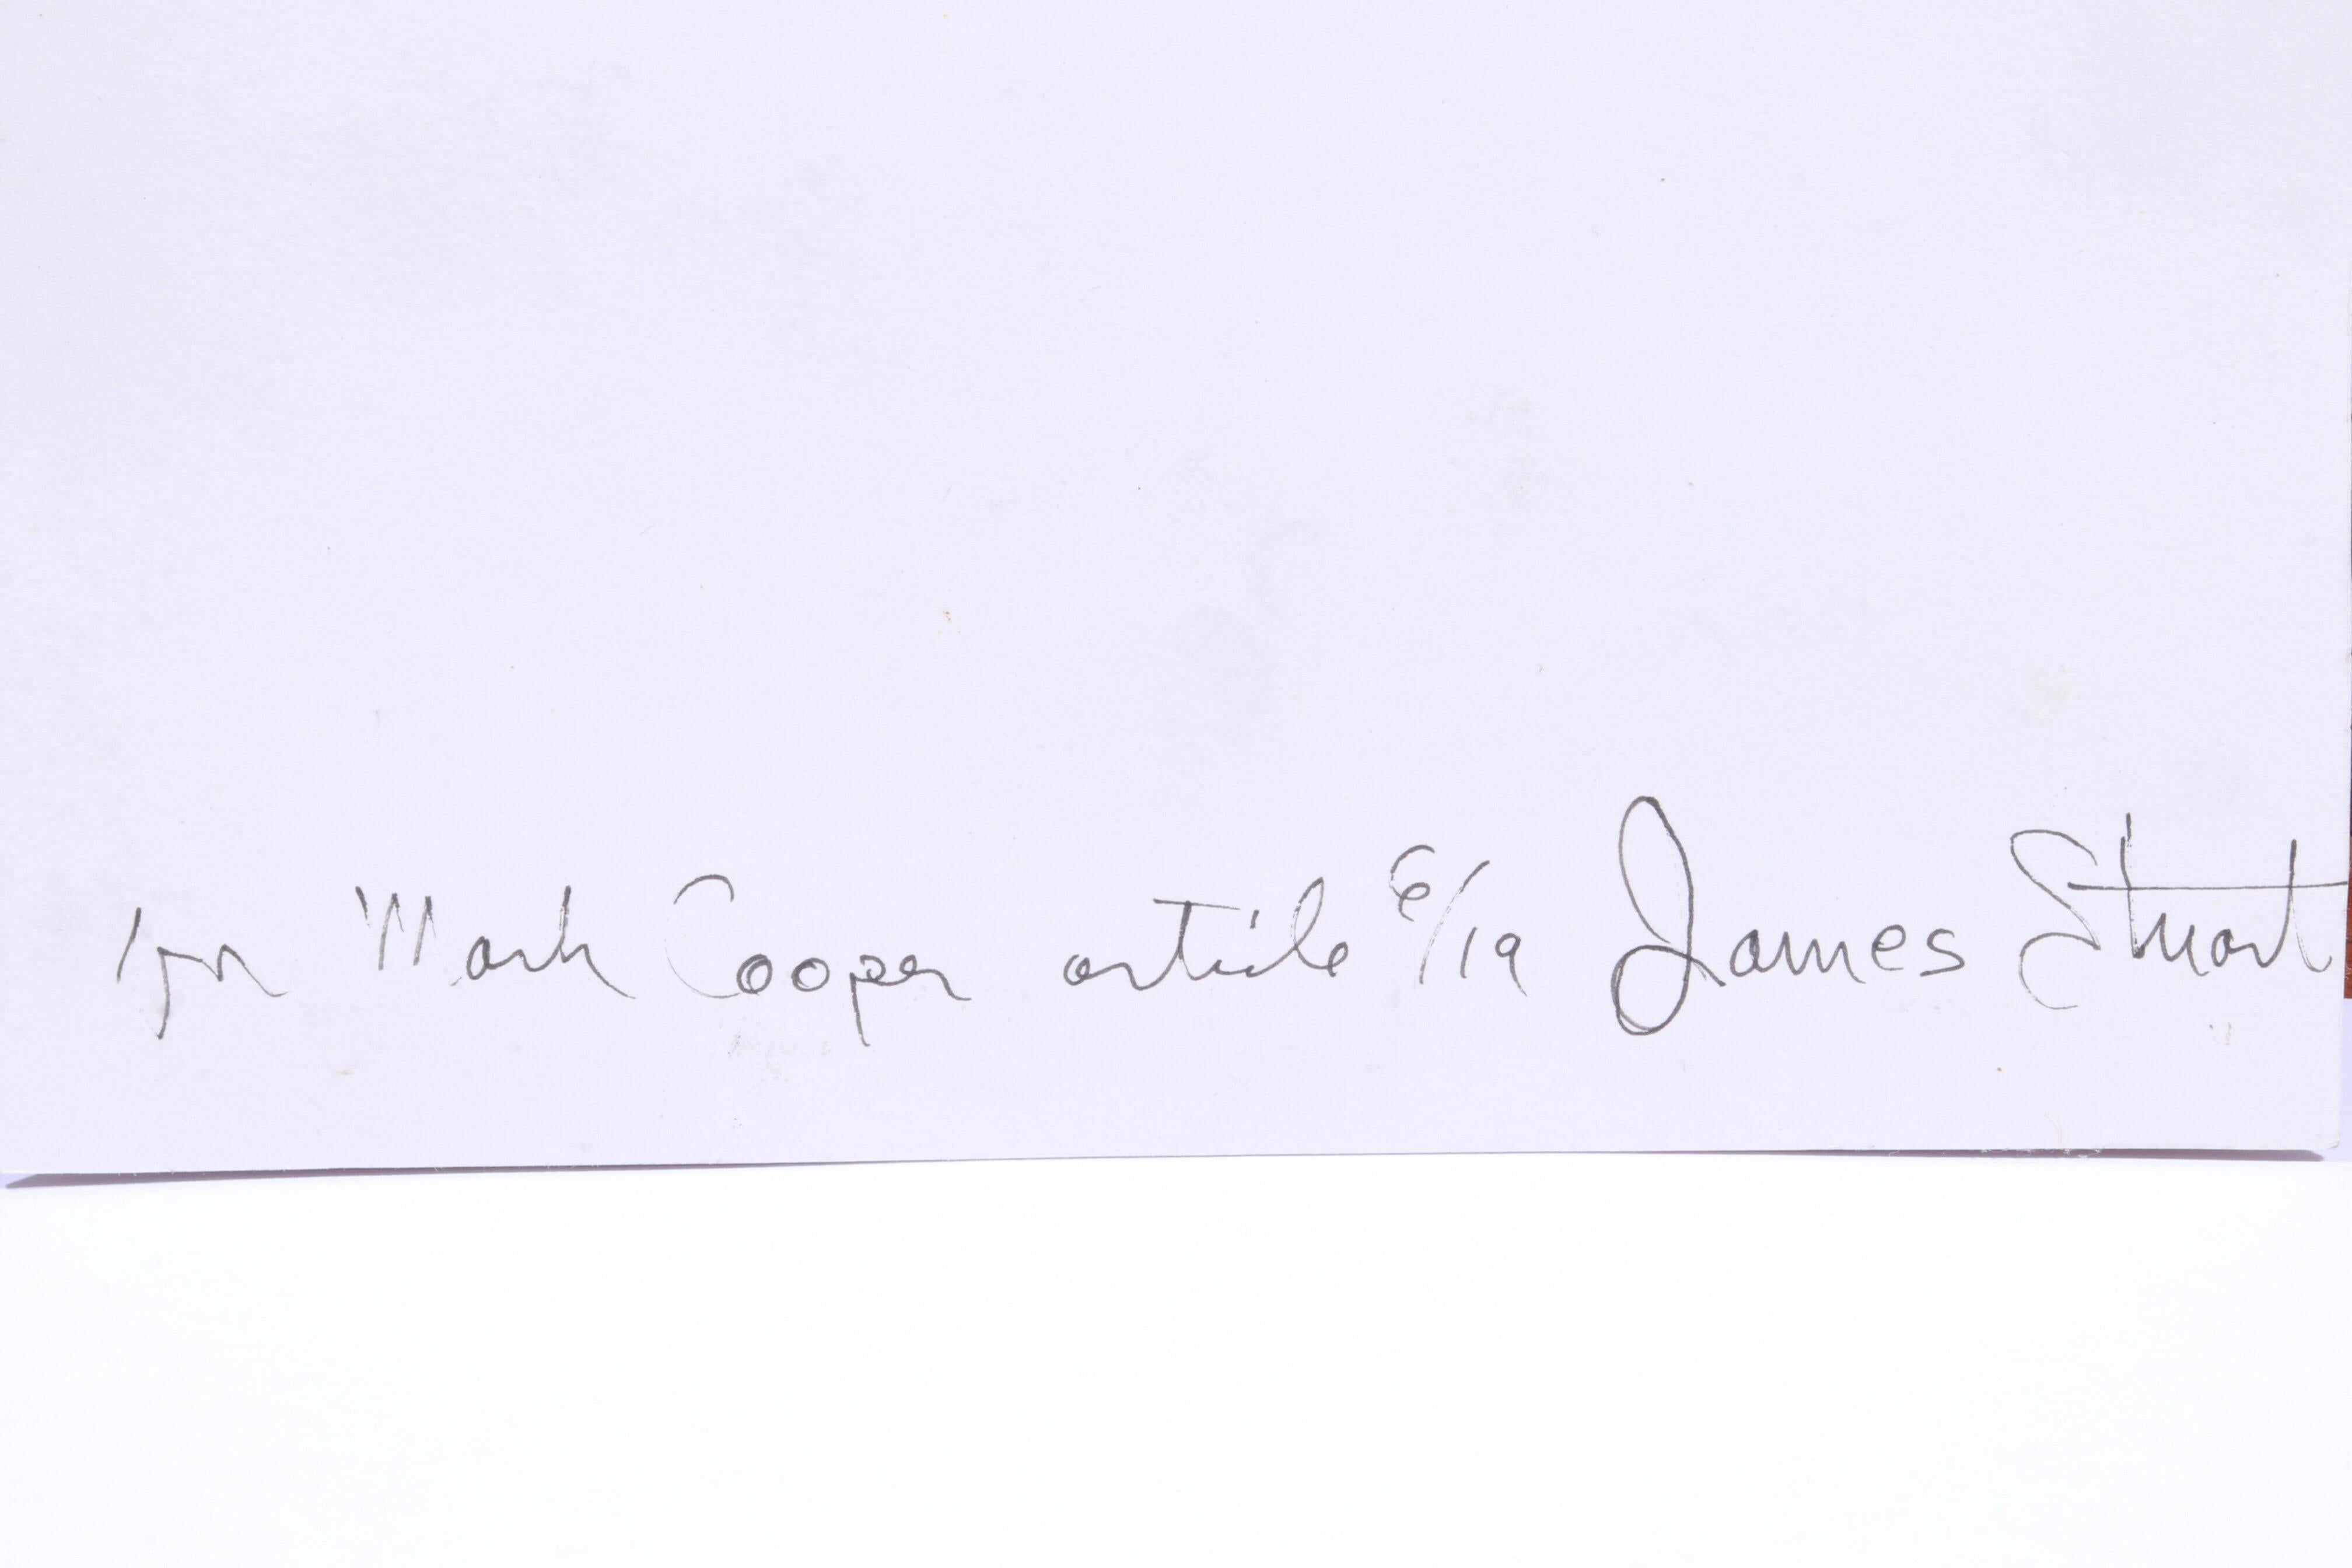 for Mark Cooper article 6/19 James Stuart